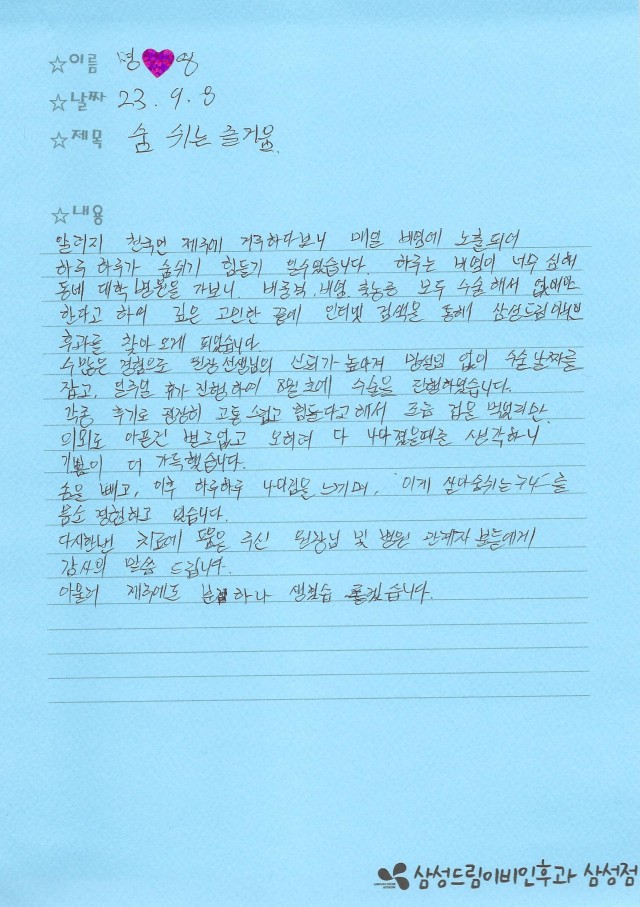 ☆이름 명 영
☆날짜 23. 9. 8
☆제목 숨 쉬는 즐거움.
☆내용
알러지 천국인 제주에 거주하다보니 매일 비염에 노출되어
하루 하루가 숨쉬기 힘들기 일수였습니다. 하루는 비염이 너무 심해
동네 대학병원을 가보니, 비중격, 비염, 축농증 모두 수술해서 없애야만
한다고 하여 깊은 고민한 끝에 인터넷 검색을 통해 삼성드림이비인
후과를 찾아 오게 되었습니다.
수많은 경험으로 원장선생님의 신뢰가 높아져 망설임 없이 수술날짜를
잡고, 일주일 휴가 진행하여 8월 초에 수술을 진행하였습니다.
각종 후기로 굉장히 고통스럽고 힘들다고 해서 조금 겁을 먹었지만,
의외로 아픈건 별로없고 오히려 다 나아졌을때를 생각하니
기쁨이 더 가득했습니다.
솜을 빼고, 이후 하루하루 나아짐을 느끼며, "이게 살아숨쉬는구나"를
몸소 경험하고 있습니다.
다시한번 치료에 도움을 주신 원장님 및 병원 관계자 분들에게
감사의 말씀 드립니다.
아울러 제주에도 하나 생겼음 좋겠습니다.
삼성드림이비인후과 삼성점